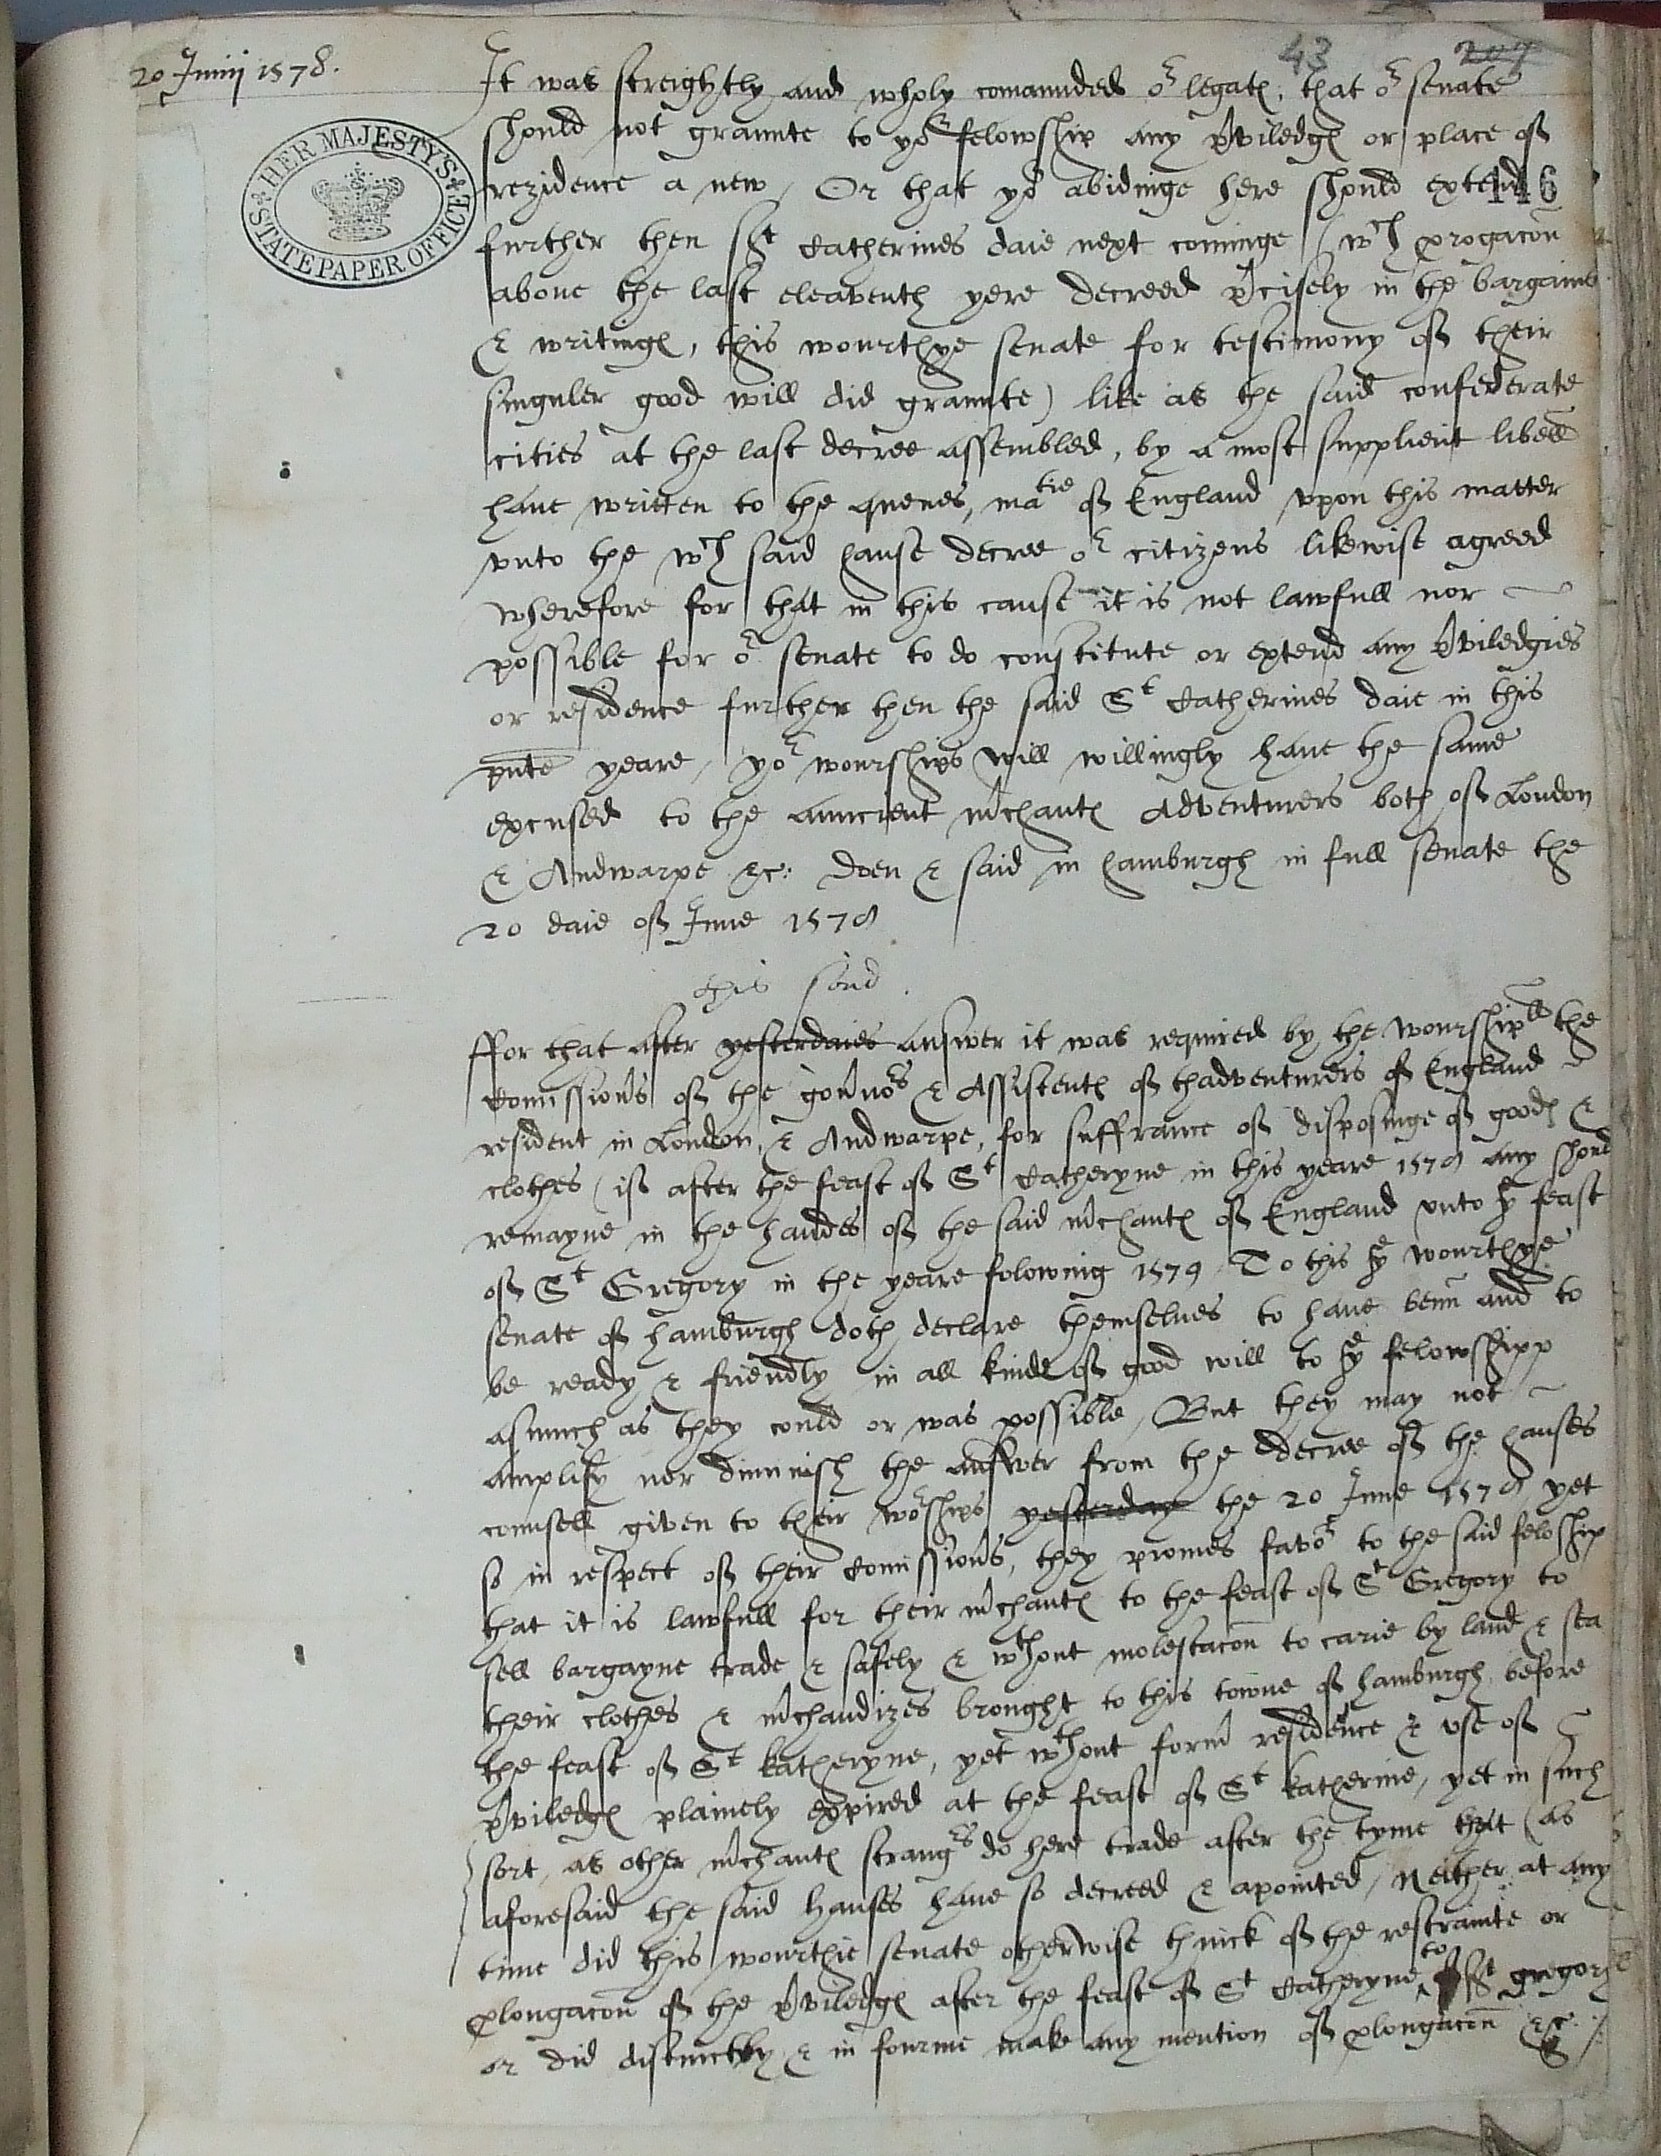 20 Junij 1578.
43
207
146
HER MAJESTY'S STATE PAPER OFFICE
It was streightly and wholy comaunded or legates, that or senate
should not graunte to yor felowship any priviledges or place of
rezidence a new, Or that yor abidinge here should extend
further then St Catherines daie next cominge (wch progacon
above the last eleaventh yere decreed precisely in the bargaine
& writinges, this wourthye senate for testimony of their
singuler good will did graunte) like as the said confederate
cities at the last decree assembled, by a most supplient libell
have written to the quenes matie of England upon this matter
vnto the wch said hanse decree or citizens likewise agreed
wherefore for that in this cause it is not lawfull nor
possible for or senate to do constitute or extend any priviledgies
or residence further then the said St Catherines daie in this
pnte yeare, yor wourships will willingly have the same
excused to the auncient mchantes Adventurers both of London
& Andwarpe &c: doen & said in hamburgh in full senate the
20 daie of June 1578
this said
ffor that after yesterdaies answer it was required by the wourshipll the
Comissionrs of the gouvnors & Assistentes of thadventurers of England
resident in London, & Andwarpe, for suffrance of disposinge of goodes &
clothes (if after the feast of St Catheryne in this yeare 1578 any should
remayne in the handes of the said mchantes of England vnto ye feast
of St Gregory in the yeare folowing 1579 To this ye wourthye
senate of hamburgh doth declare themselves to have benn and to
be ready & friendly in all kinde of good will to ye felowshipp
asmuch as they could or was possible, But they may not
amplify nor diminish the answer from the decree of the hanses
counsell given to their worships yesterday the 20 June 1578 yet
so in respect of their Comissionrs, they promes favor to the said feloship
that it is lawfull for their mchantes to the feast of St Gregory to
sell bargayne trade & safely & wthout molestacon to carie by land & sea
their clothes & mchandizes brought to this towne of hamburgh before
the feast of St Katheryne, yet wthout form residence & use of
priviledges plainely expired at the feast of St Katherine, yet in such
sort, as other mchantes strangrs do here trade after the tyme that (as
aforesaid the said Hanses have so decreed & apointed, Neither at any
time did this wourthie senate otherwise thinck of the restrainte or
plongacon of the priviledges after the feast of St Catheryne to St gregory
or did distinctly & in fourme make any mention of plongacon &c: